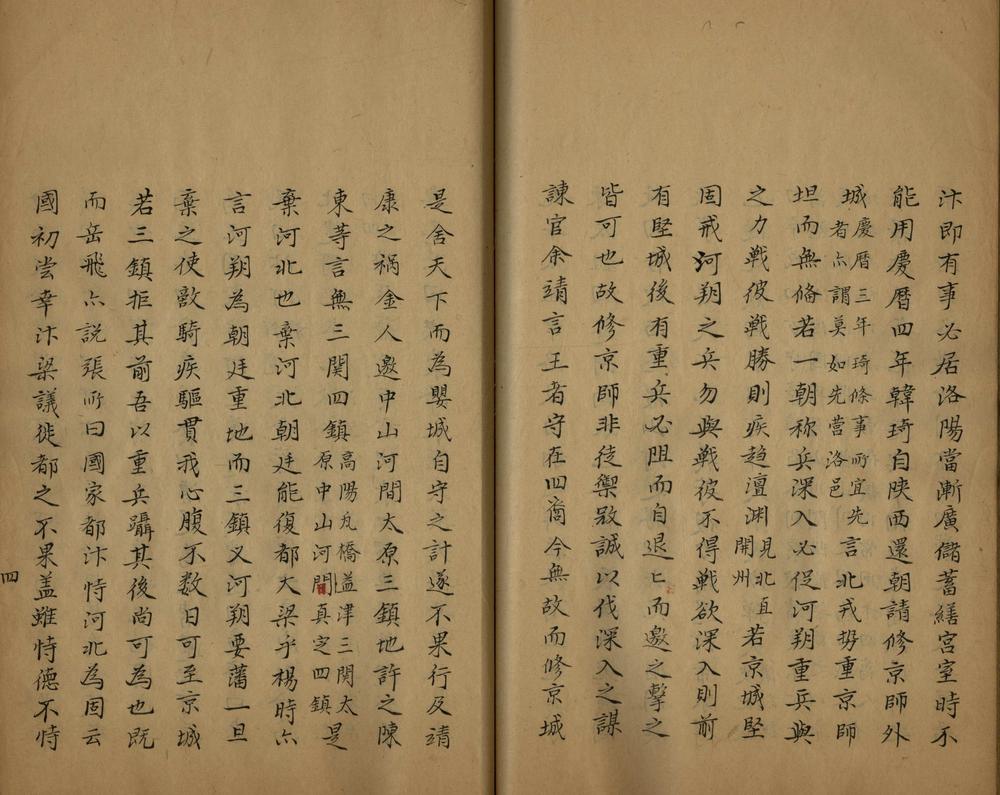 汴即有事必居洛陽當漸廣儲蓄繕宫室時不
能用慶曆四年韓琦自陝西還朝請修京師外
城慶曆三年琦條事所宜先者亦謂莫如先营洛邑言北戎势重京師
坦而無俻若一朝称兵深入必促河朔重兵與
之力戰彼戰勝則疾趋澶渊見北直開州若京城堅
固戒河朔之兵勿與戰彼不得戰欲深入則前
有堅城後有重兵必阻而自退匕而邀之擊之
皆可也故修京師非徒禦敵誠以伐深入之謀
諫官余靖言王者守在四裔今無故而修京城
是舍天下而為嬰城自守之計遂不果行及靖
康之禍金人邀中山河間太原三鎮地許之陳
東等言無三関四鎮高陽瓦橋益津三関太原中山河間真定四鎮是
棄河北也棄河北朝廷能復都大梁乎楊時亦
言河朔為朝廷重地而三鎮又河朔要藩一旦
棄之使敵騎疾驅貫我心腹不数日可至京城
若三鎮拒其前吾以重兵躡其後尚可為也既
而岳飛亦説張所曰國家都汴恃河北為固云
國初尝幸汴梁議徙都之不果盖雖恃德不恃
四